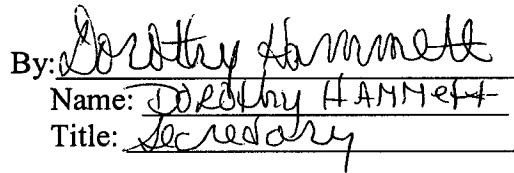 By: Dorothy Hammett
Name: DOROthy HAMMett
Title: Secretary